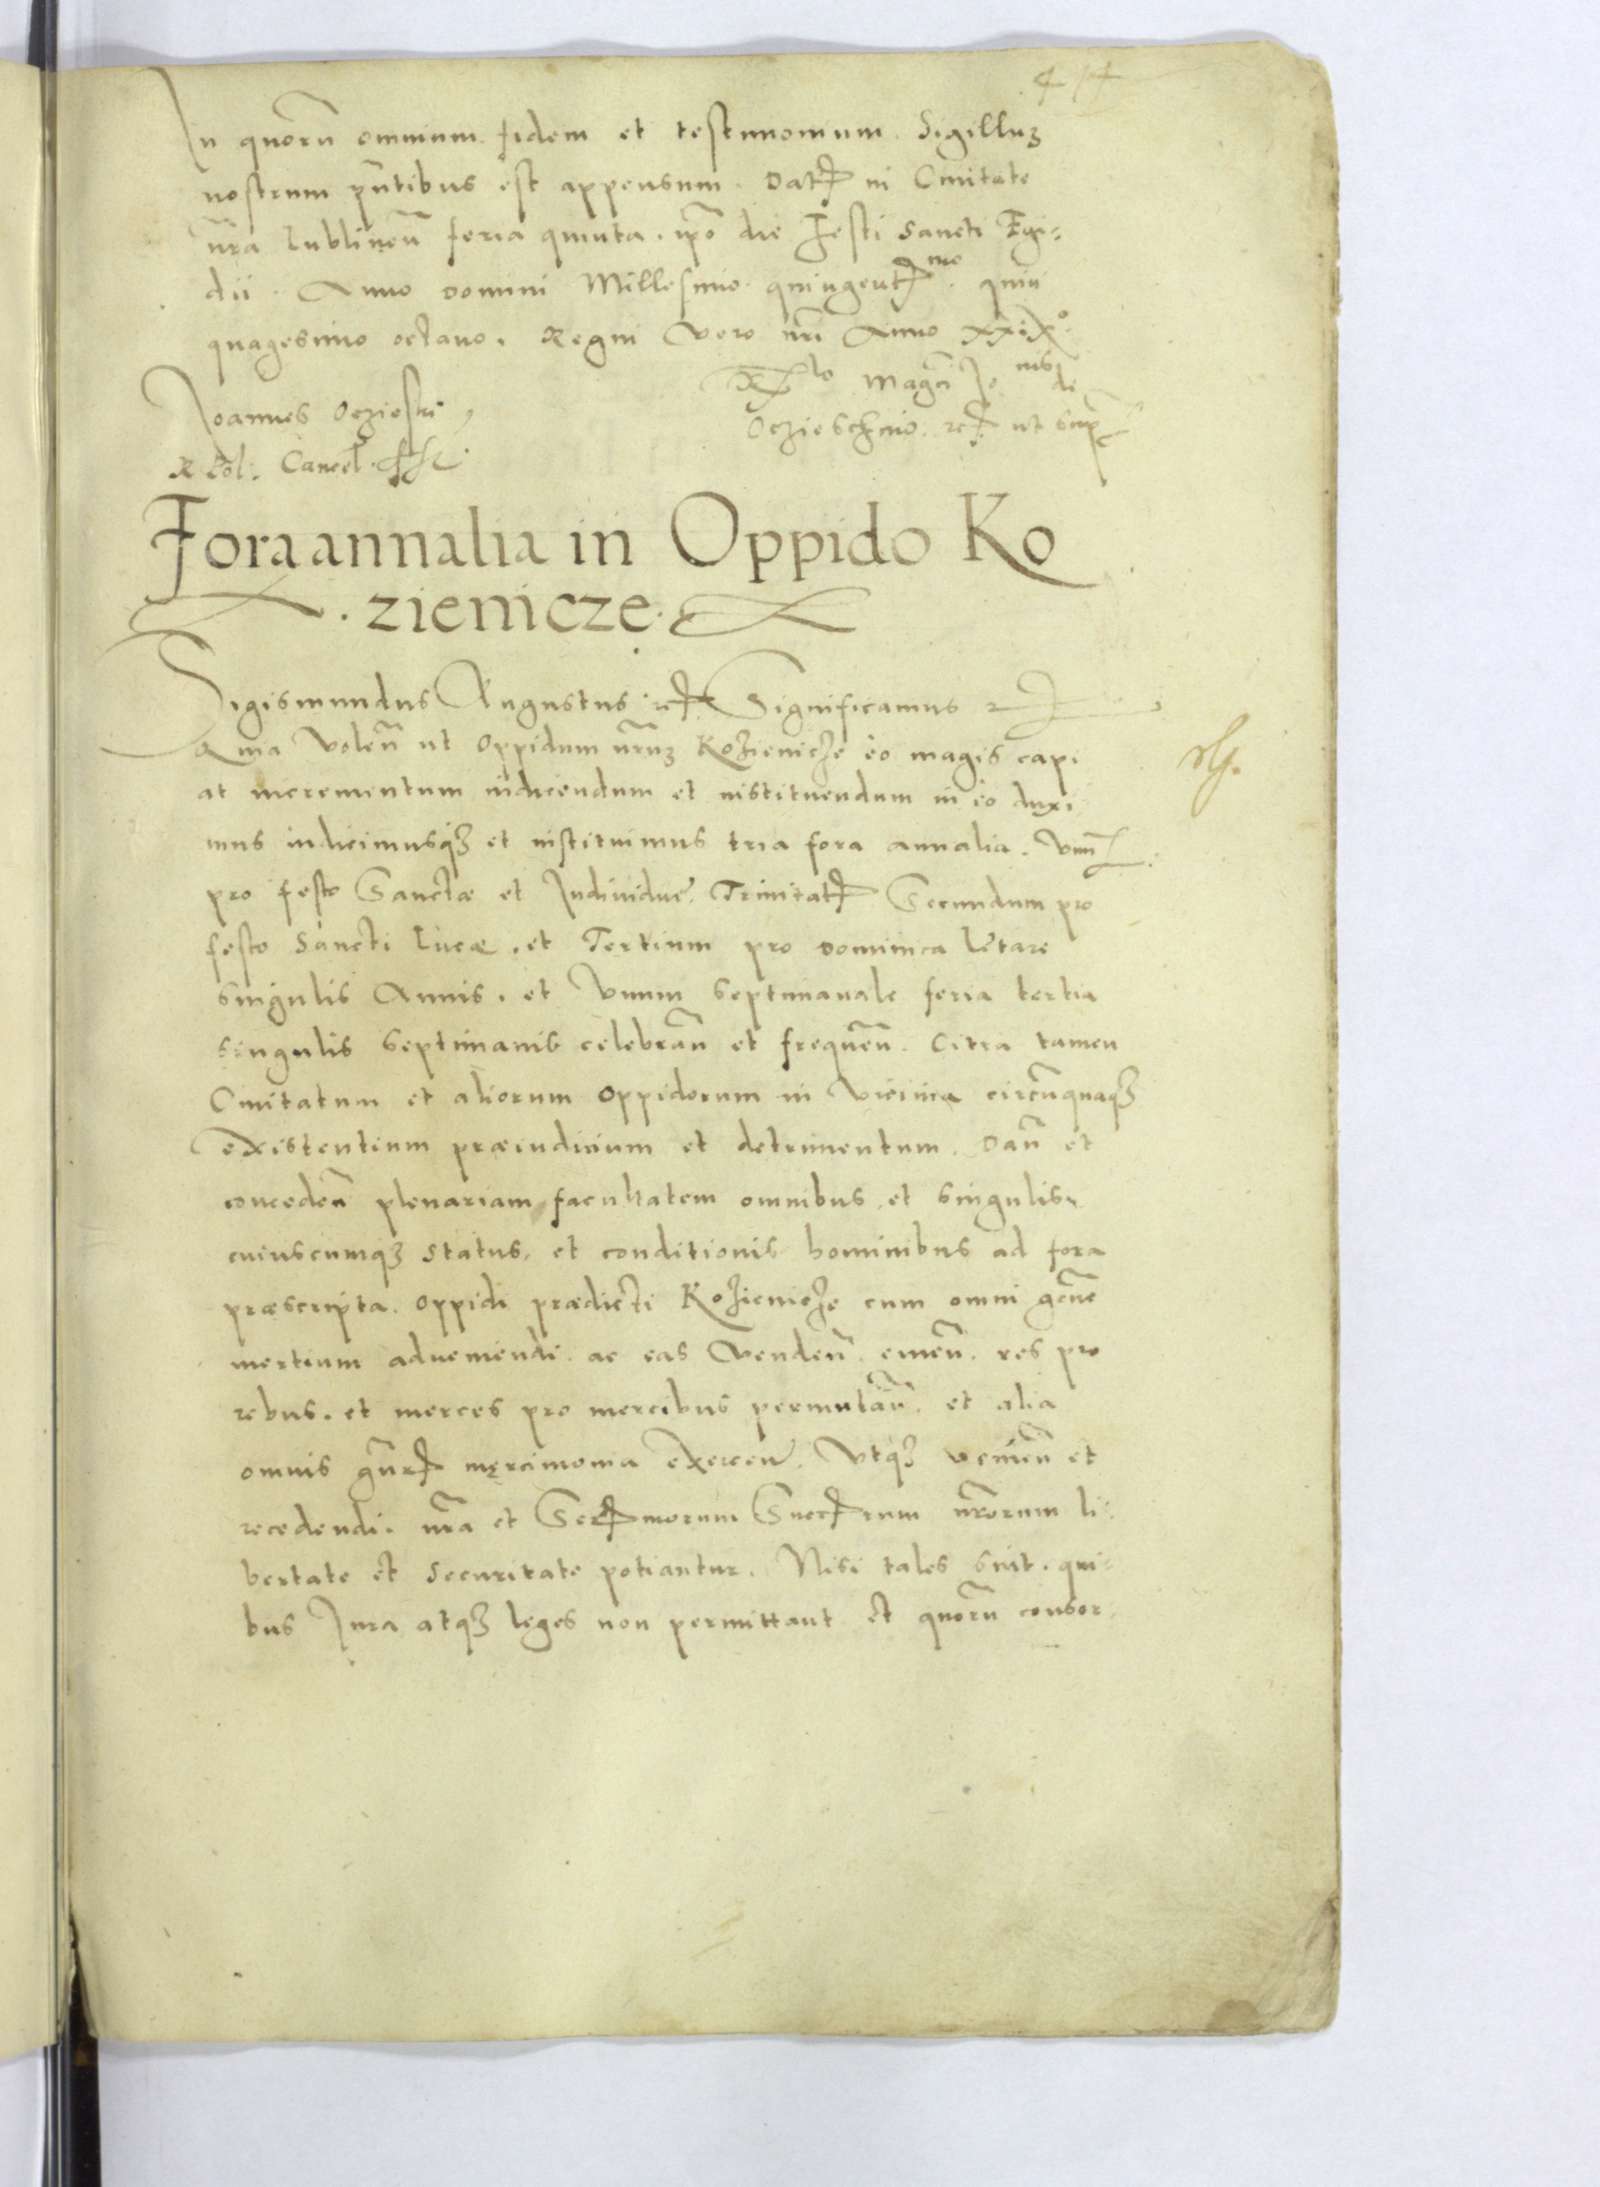 In quorū omnium fidem et testimonium. Sigilluȝ
nostrum pn̄tibus est appensum. Datꝭ in Ciuitate
nr̄a Lublineñ feria quinta. ip̄o die Festi Sancti Egi-
dii. Anno Domini Millesimo quingentꝭmo quin
quagesimo octauo. Regni Vero nr̄i Anno XXiX°.
Joannes Oczieski
R. Pol. Cancel. ssr.
Relo Magci Jo nis de
Oczieschino. rcꝭ ut supꝭ
Fora annalia in Oppido Ko
. zienicze.
Sigismundus Augustus. rcꝭ Significamus rcꝭ
Quia Voleñ ut Oppidum nr̄uȝ Kozienicze eo magis capi
at incrementum indicendum et instituendum in eo duxi
mus indicimusqȝ et instituimus tria fora annalia. Vnū
pro festo Sanctæ et Indiuiduę Trinitatꝭ Secundum pro
festo Sancti Lucæ. et Tertium pro Dominica Lętare
singulis Annis. et Vnum septimanale feria tertia
singulis septimanis celebrañ et frequeñ. Citra tamen
Ciuitatum et aliorum Oppidorum in Vicinia circūquaqȝ
existentium præiudicium et detrimentum. Dañ et
concedeñ plenariam facultatem omnibus et singulis
cuiuscumqȝ status. et conditionis hominibus ad fora
præscripta. Oppidi prædicti Kozienicze cum omni gen̄e
mertium adueniendi. ac eas Vendeñ. emeñ. res pro
rebus. et merces pro mercibus permutañ. et alia
omnis gn̄rꝭ męrcimonia exerceñ. Vtqȝ venieñ et
recedendi. nr̄a et Serꝭmorum Succꝭrum nr̄orum li-
bertate et securitate potiantur. Nisi tales sint. qui-
bus Jura atqȝ leges non permittant et quorū consor-